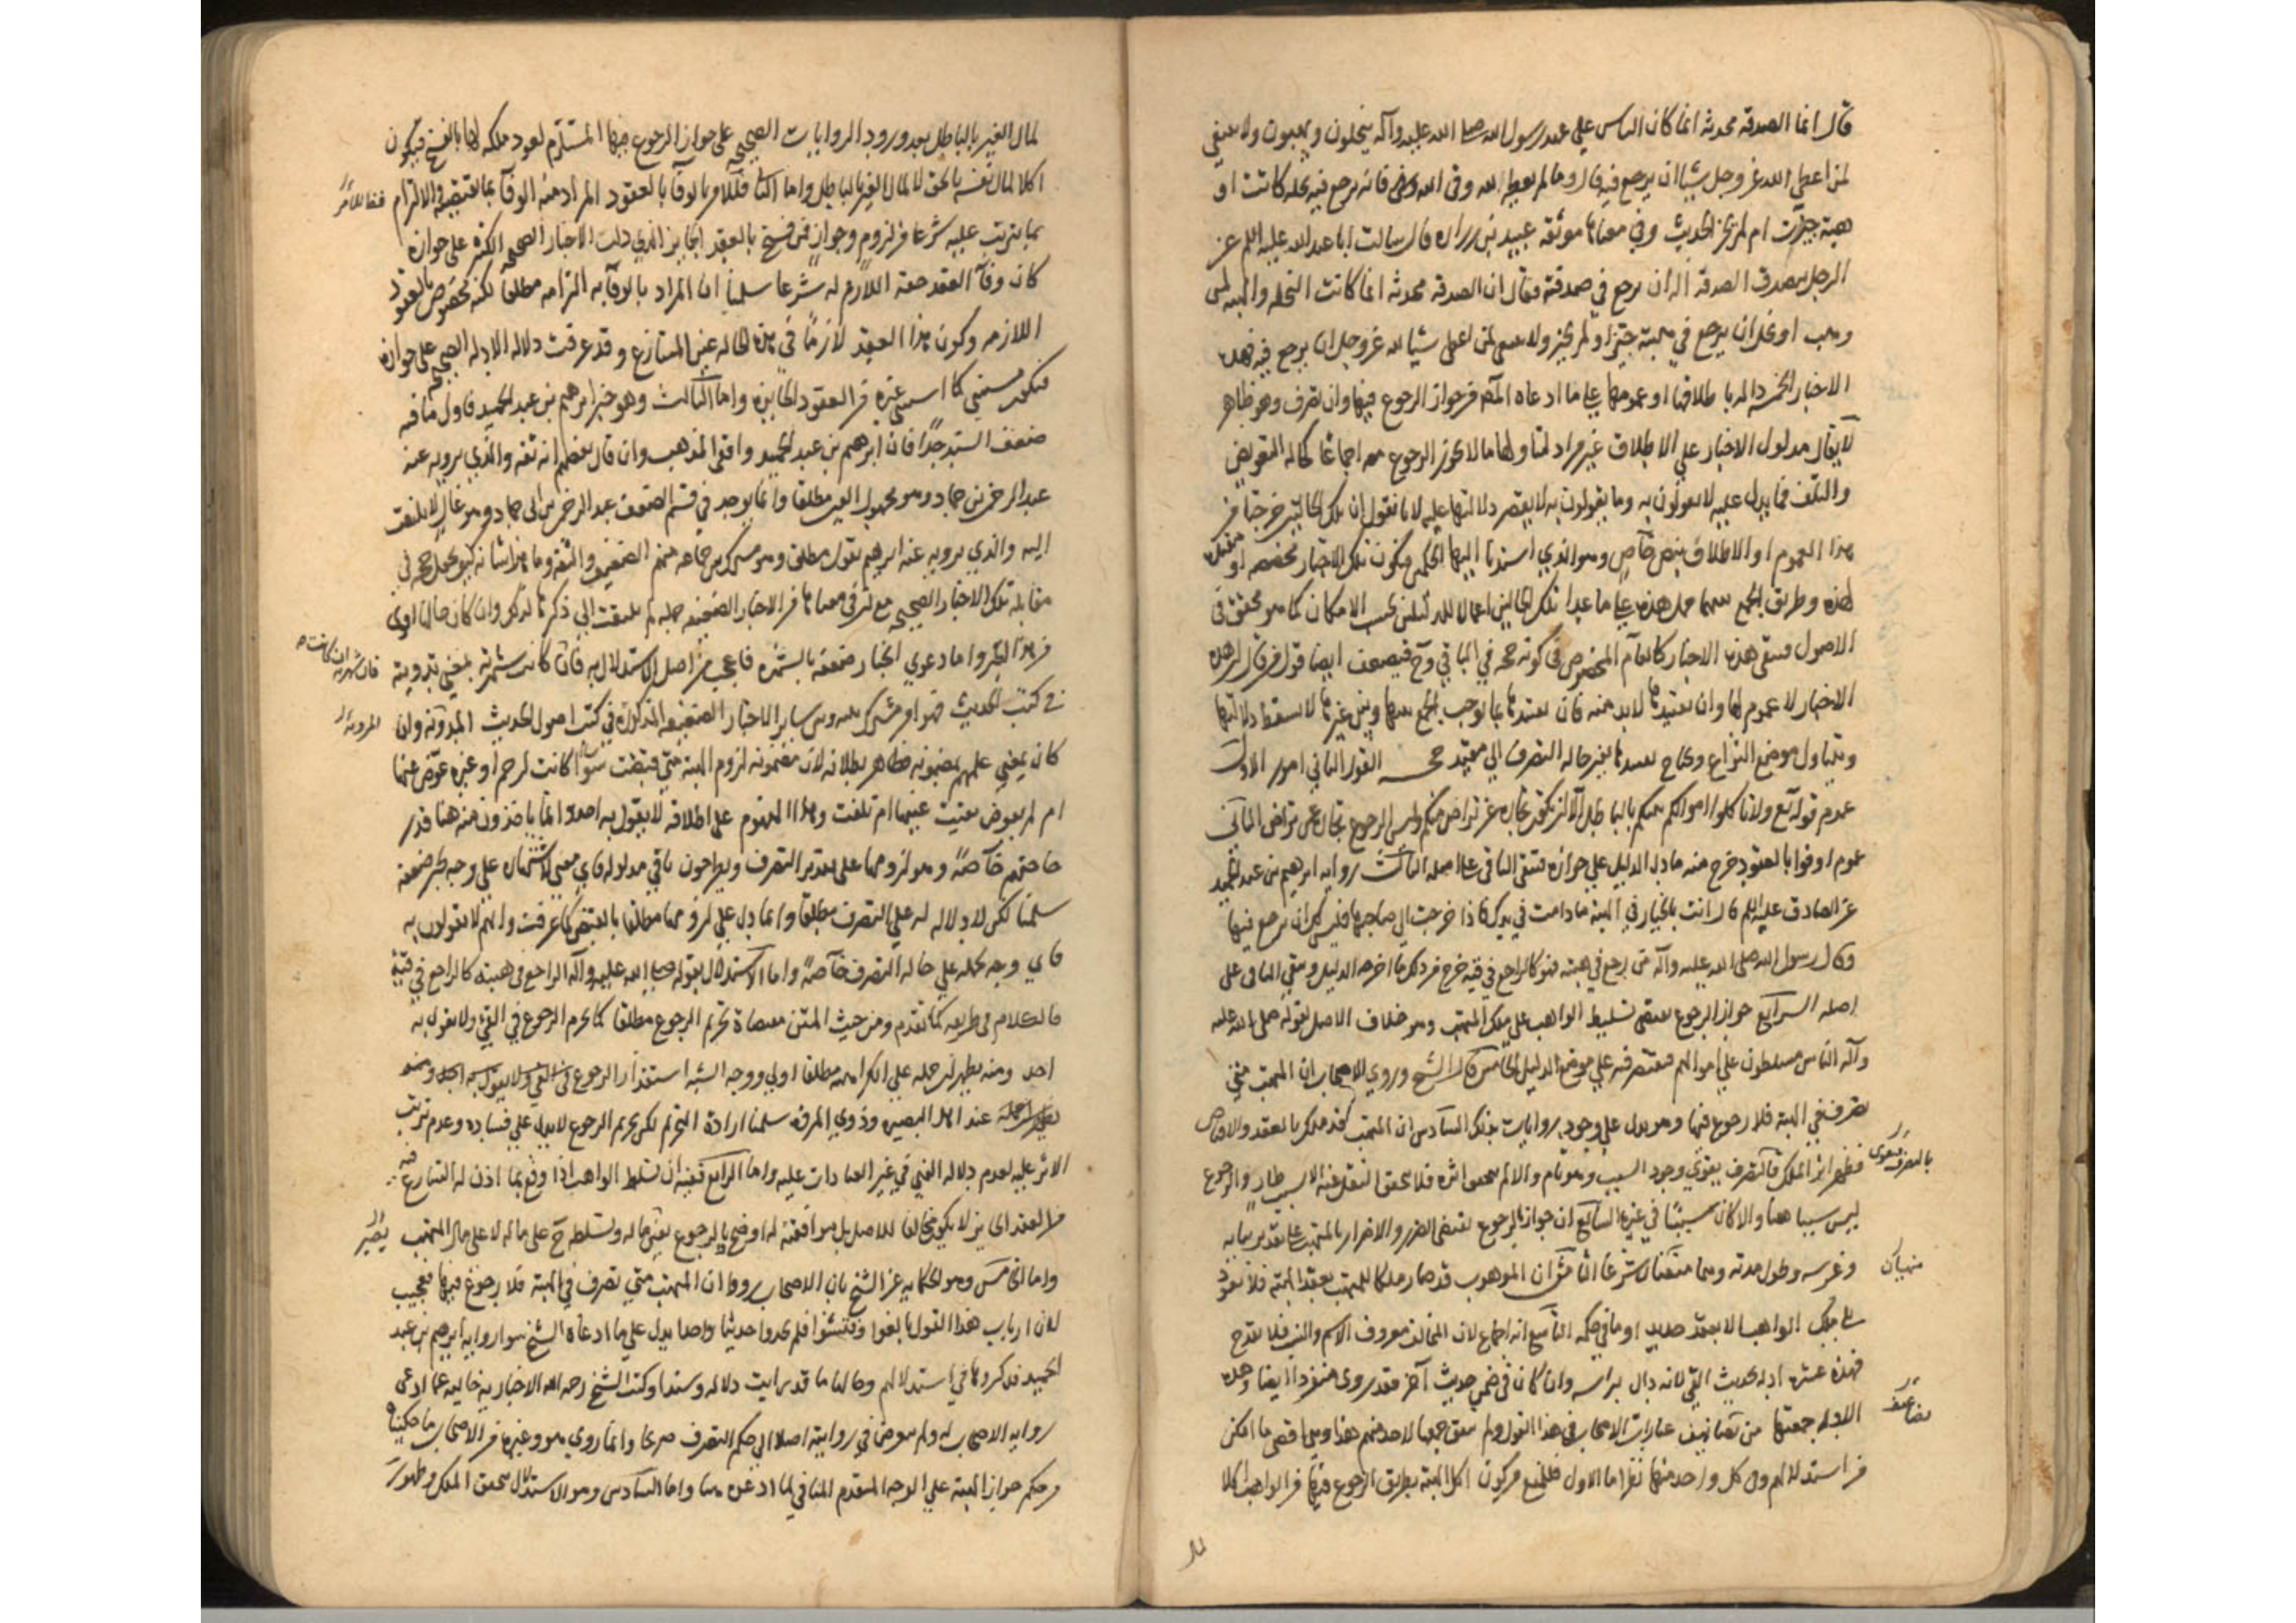 قال انما الصدقه محدثة انما كان الناس على عهد رسول الله صلى الله عليه وآله ينحلون ويهبون ولا ينبغي
لمن اعطى الله عز وجل شيئا ان يرجع فيه قال وما لم يعطه لله وفي الله فانه يرجع فيه نحله كانت او
هبة حيزت ام لم تحز الحديث وفي معناها موثقة عبيد بن زراره قال سالت ابا عبد الله عليه السلم عن
الرجل يتصدق الصدقة اله ان يرجع في صدقته فقال ان الصدقة محدثة انما كانت النحله والهبه لمن
وهب او نحل ان يرجع في هبته حيز او لم يحز ولا ينبغي لمن اعطى شيئا لله عز وجل ان يرجع فيه فهذه
الاخبار الخمسه داله باطلاقها او عمومها على ما ادعاه من جواز الرجوع فيها وان تصرف وهو ظاهر
لا يقال مدلول الاخبار على الاطلاق غير مراد لتناولها ما لا يجوز الرجوع معه اجماعا كحاله التعويض
والتلف فما يدل عليه لا يقولون به وما يقولون به لا يقتصر دلالتها عليه لانا نقول ان تلك الحالتين خرجتا من
هذا العموم او الاطلاق بنص خاص وهو الذي اسندنا اليها الحكم فيكون تلك الاخبار مخصصه او مقيده
لهذه وطريق الجمع بينهما حمل هذه على ما عدا تلك الحالتين اعمالا للدليلين بحسب الامكان كما هو محقق في
الاصول فتبقى هذه الاخبار كالعام المخصوص في كونه حجه في الباقي وح فيضعف ايضا قول من قال ان هذه
الاخبار لا عموم لها وان تقييدها لا بد منه فان تقييدها بما يوجب الجمع بينها وبين غيرها لا يسقط دلالتها
ويتناول موضع النزاع ويحتاج تقييدها بغير حاله التصرف الى مقيد حجه القول الثاني امور الاول
عموم قوله تع ولا تاكلوا اموالكم بينكم بالباطل الا ان تكون تجارة عن تراض منكم وليس الرجوع تجارة عن تراض الثاني
عموم اوفوا بالعقود خرج منه ما دل الدليل على جوازه فتبقى الباقي على اصله الثالث رواية ابرهيم بن عبد الحميد
عن الصادق عليه السلم قال انت بالخيار في الهبة ما دامت في يدك فاذا خرجت الى صاحبها فليس لك ان ترجع فيها
وقال رسول الله صلى الله عليه وآله من رجع في هبته فهو كالراجع في قيئه خرج من ذلك ما اخرجه الدليل وبقي الباقي على
اصله الرابع جواز الرجوع يقتضي تسليط الواهب على ملك المتهب وهو خلاف الاصل لقوله صلى الله عليه
وآله الناس مسلطون على اموالهم فيقتصر فيه على موضع الدليل الخامس قال الشيخ وروي الاصحاب ان المتهب متى
تصرف في الهبة فلا رجوع فيها وهو يدل على وجود روايات بذلك السادس ان المتهب قد ملك بالعقد والاقباض
فظهر اثر الملك فالتصرف يقوى وجود السبب وهو تام والا لم يتحقق اثره فلا يتحقق النقل عنه الا بسبب طار والرجوع
بالتصرف فيقوى
ليس سببا هنا والا كان سببا في غيره السابع ان جواز الرجوع يقتضي الضرر والاضرار بالمتهب على تقدير بنايه
وغرسه وطول مدته وهما منفيان شرعا الثامن ان الموهوب قد صار ملكا للمتهب بعقد الهبة فلا يعود
منفيان
الى ملك الواهب الا بعقد جديد او ما في حكمه التاسع انه اجماع لان المخالف معروف الاسم والنسب فلا يقدح
فهذه عشرة ادله بحديث القئ لانه دال براسه وان كان في ضمن حديث آخر فقد روى منفردا ايضا وهذه
الادله جمعتها من تصانيف عبارات الاصحاب في هذا القول ولم يتفق جمعها لاحد منهم هذا وهي اقصى ما امكن
تضاعيف
من استدلالهم وفي كل واحد منها نظر اما الاول فلمنع من كون اكل الهبة بطريق الرجوع فيها من الواهب اكلا
لمال الغير بالباطل بعد ورود الروايات الصحيحه على جواز الرجوع فيها المستلزم لعود ملكه لها بالفسخ فيكون
اكلا لمال نفسه بالحق لا لمال الغير بالباطل واما الثاني فللامر بالوفا بالعقود المراد منه الوفا بما تقتضيه في الالزام
بما يترتب عليه شرعا من لزوم وجواز فمن فسخ بالعقد الجايز الذي دلت الاخبار الصحيحه الكثيرة على جوازه
كان وفآ العقد حقه اللازم له شرعا سلمنا ان المراد بالوفآ به التزامه مطلقا لكنه مخصوص بالعقود
اللازمه وكون هذا العقد لازما في هذه الحاله عين المتنازع وقد عرفت دلاله الادله الصحيحه على جوازه
فيكون مستثنى كما استثنى غيره من العقود الجايزه واما الثالث وهو خبر ابرهيم بن عبد الحميد فاول ما فيه
ضعف السند جدا فان ابرهيم بن عبد الحميد واقفي المذهب وان قال بعضهم انه ثقه والذي يرويه عنه
عبد الرحمن بن حماد وهو مجهول العين مطلقا وانما يوجد في قسم الضعف عبد الرحمن بن ابي حماد وهو غال لا يلتفت
اليه والذي يرويه عنه ابرهيم يقول مطلق وهو مشترك بين جماعه منهم الضعيف والثقه وما هذا شانه كيف يجعل حجه في
مقابله تلك الاخبار الصحيحه مع ان في معناها من الاخبار الضعيفه جمله لم يلتفت الى ذكرها لذلك وان كان حالها اولى
من هذا الخبر واما دعوى انجبار ضعفه بالشهره فاعجب من اصل الاستدلال به فان كانت شهرته بمعنى تدوينه
فان شهرته ان كانت
في كتب الحديث فهو امر مشترك بينه وبين ساير الاخبار الضعيفه المذكورة في كتب اصول الحديث المدونه وان
المرويه
كان بمعنى عملهم بمضمونه فظاهر بطلانه لان مضمونه لزوم الهبة متى قبضت سواء كانت لرحم او غيره عوض عنها
ام لم يعوض بقيت عينها ام تلفت وهذا المفهوم على اطلاقه لا يقول به احد انما ياخذون منه هنا قدر
حاجتهم خاصه وهو لزومها على تقدير التصرف ويطرحون باقي مدلوله فاي معنى لاشتهاره على وجه يجبر ضعفه
سلمنا لكن لا دلاله له على التصرف مطلقا وانما دل على لزومها مطلقا بالقبض كما عرفت وانهم لا يقولون به
فاي وجه لحمله على حاله التصرف خاصه واما الاستدلال بقوله صلى الله عليه وآله الراجع في هبته كالراجع في قيئه
فالكلام في طريقه كما تقدم ومن حيث المتن مقتضاه تحريم الرجوع مطلقا كما يحرم الرجوع في القئ ولا يقول به
احد ومنه يظهر ان حمله على الكراهه مطلقا اولى ووجه الشبه استقذار الرجوع في القئ
عند اهل البصيره وذوي المرؤه سلمنا ارادة التحريم لكن تحريم الرجوع لا يدل على فساده وعدم ترتب
الاثر عليه لعدم دلاله النهي في غير العبادات عليه واما الرابع ففيه ان تسلط الواهب اذا وقع بما اذن له الشارع فيه
من العقد الجايز لا يكون مخالفا للاصل بل موافقته له اوضح اذ بالرجوع يصير ماله وتسلطه ح على ماله لا على مال المتهب
يصير
واما الخامس وهو الحكايه عن الشيخ بان الاصحاب رووا ان المتهب متى تصرف في الهبة فلا رجوع فيها فعجيب
لان ارباب هذا القول بالغوا وفتشوا فلم يجدوا حديثا واحدا يدل على ما ادعاه الشيخ سوا رواية ابرهيم بن عبد
الحميد فذكروها في استدلالهم وحالها ما قد رايت دلاله وسندا وكتب الشيخ رحمه الله الاخباريه خاليه عما ادعى
روايه الاصحاب له ولم يتعرض في روايته اصلا الى حكم التصرف صريحا وانما روى هو وغيره من الاصحاب ما حكيناه
من حكم جواز الهبة على الوجه المتقدم المنافي لما ادعوه هنا واما السادس وهو الاستدلال بتحقق الملك وظهور